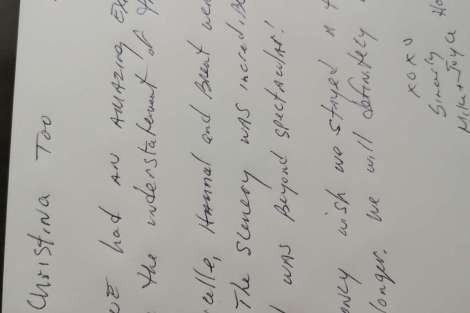 Christina Too
WE had AN AMAZING
the understatement of
and Brent
The Scenery was incredib
was Beyond spectacular!
only wish we stayed a
longer. We will definitely
xoxo
Sincerly